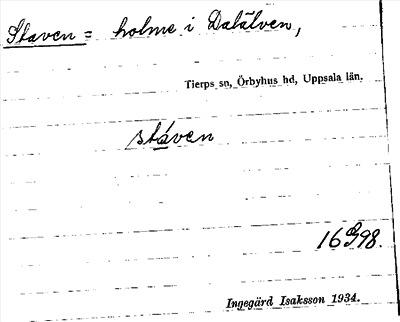 Staven = holme i Dalälven,
Tierps sn, Örbyhus hd, Uppsala län.
stáven
98.
Ingegärd Isaksson 1934.